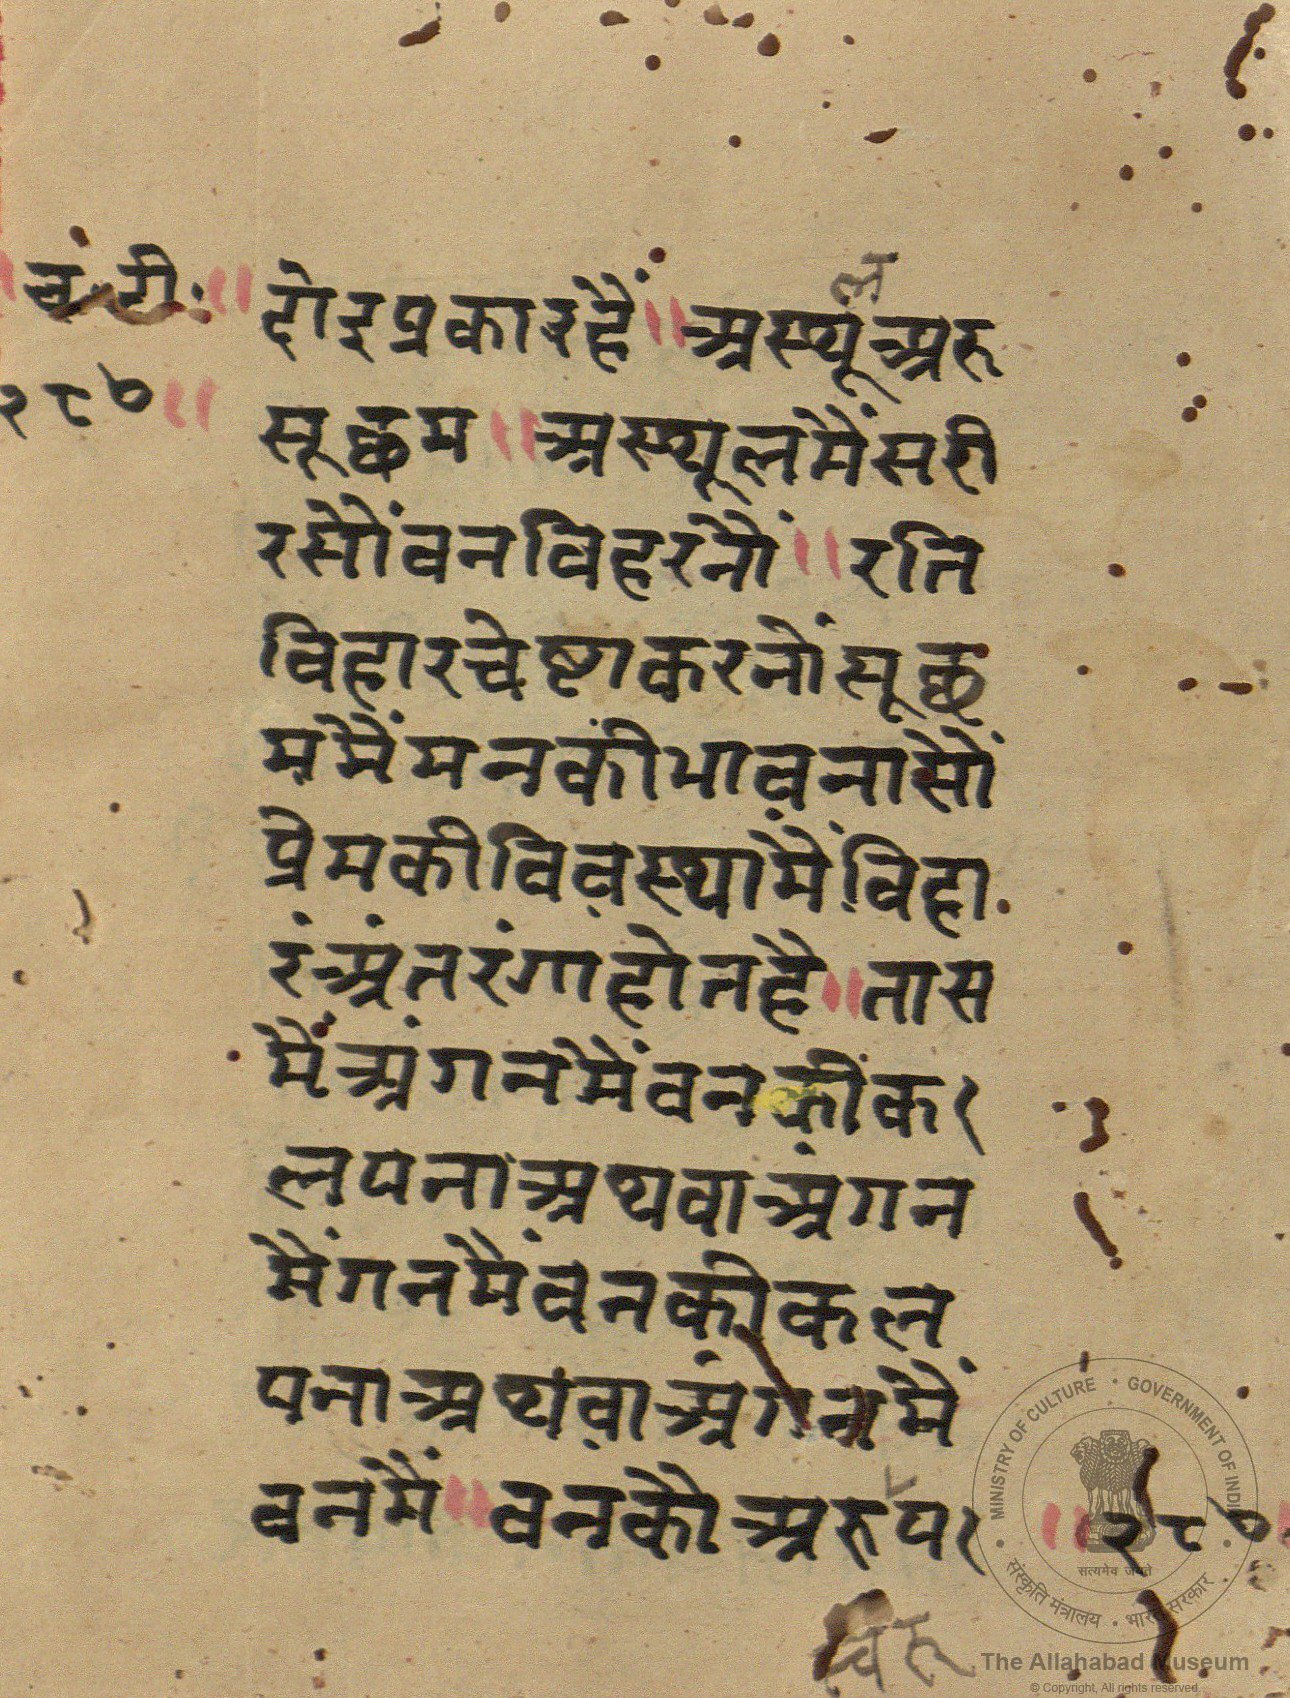 च॰टी॰॥
२८७॥
दोइप्रकारहैं॥अस्थूलअरु
सूछम॥अस्थूलमैंसरी
रसौंवनविहरनौं॥रति
विहारचेष्टाकरनौंसूछ
ममैंमनकीभावनासौं
प्रेमकीविवस्थामैंविहा
रअंतरंगाहोतहै॥तास
मैंअंगनमैंवनकीक
लपनाअथवाअंगन
मैंगनमैंवनकीकल
पनाअथवाअंगनमैं
वनमैं॥वनकौअरुप
॥२८७
The Allahabad Museum
© Copyright, All rights reserved.
MINISTRY OF CULTURE • GOVERNMENT OF INDIA
संस्कृति मंत्रालय • भारत सरकार
सत्यमेव जयते